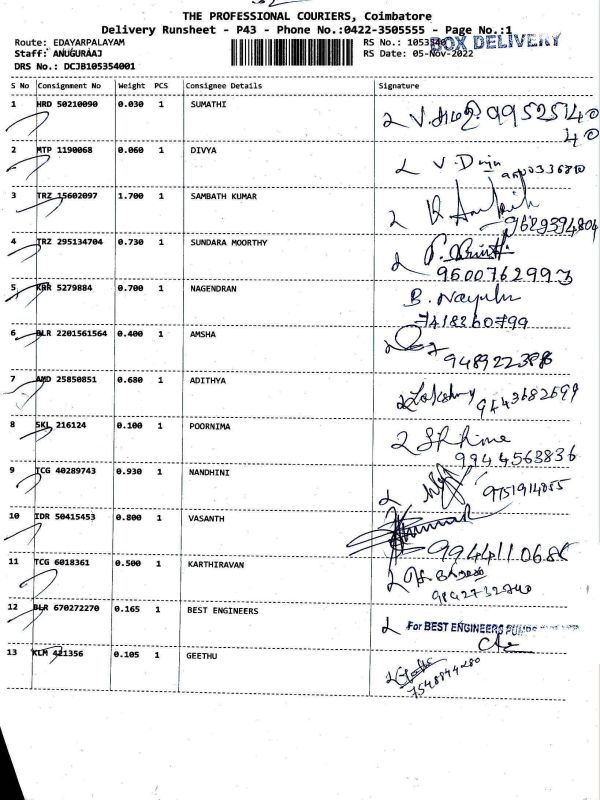 THE PROFESSIONAL COURIERS, Coimbatore
Delivery Runsheet - P43 - Phone No.:0422-3505555 - Page No.:1
Route: EDAYARPALAYAM
RS No.: 1053540
BOX DELIVERY
Staff: ANUGURAAJ
RS Date: 05-Nov-2022
DRS No.: DCJB105354001
S No Consignment No Weight PCS Consignee Details Signature
1 HRD 50210090 0.030 1 SUMATHI 99525140
40
2 MTP 1190068 0.060 1 DIVYA
3 TRZ 15602097 1.700 1 SAMBATH KUMAR
9629394804
4 TRZ 295134704 0.730 1 SUNDARA MOORTHY
9600762993
5 KRR 5279884 0.700 1 NAGENDRAN B.
7418360799
6 BLR 2201561564 0.400 1 AMSHA
7 AMD 25850851 0.680 1 ADITHYA
8 SKL 216124 0.100 1 POORNIMA
9944563836
9 TCG 40289743 0.930 1 NANDHINI 9751914055
10 IDR 50415453 0.800 1 VASANTH
11 TCG 6018361 0.500 1 KARTHIRAVAN
12 BLR 670272270 0.165 1 BEST ENGINEERS For BEST ENGINEERS
13 KLM 421356 0.105 1 GEETHU